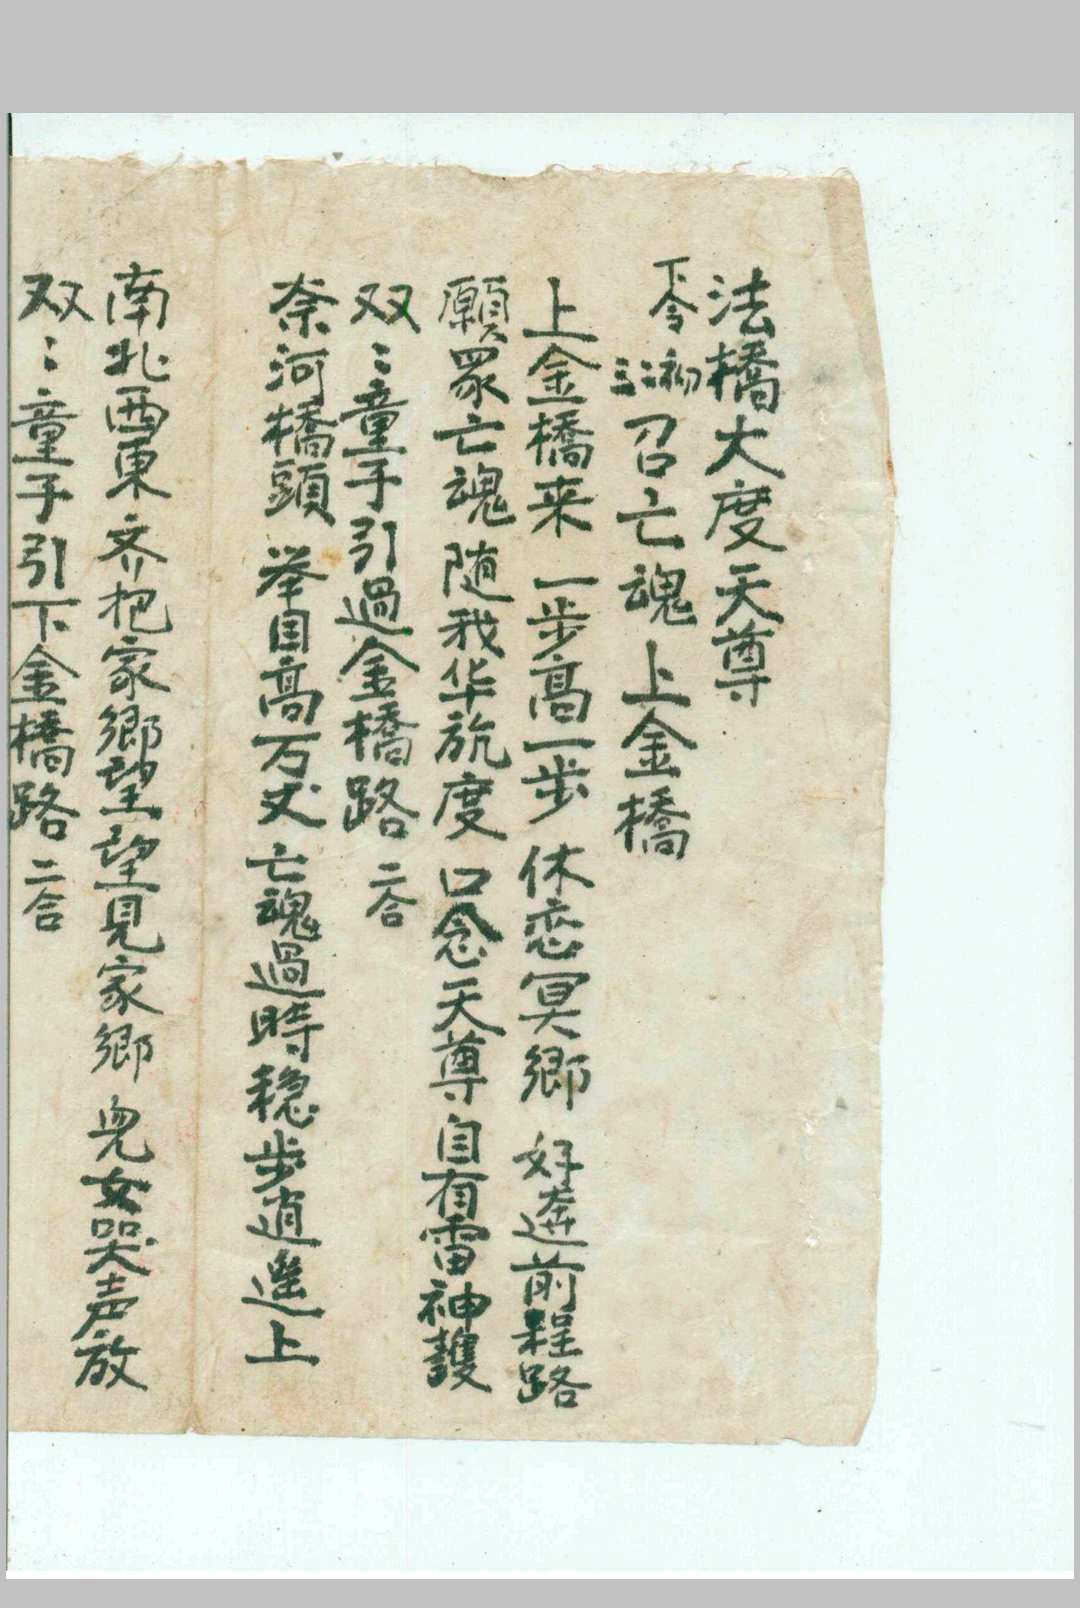 法橋大度天尊
下令 召亡魂上金橋
上金橋来 一步高一步 休恋冥鄉 好奔前程路
願眾亡魂 随我华旂度 口念天尊 自有雷神護
双〻童子引過金橋路 二合
奈河橋頭 举目高万丈 亡魂過時 稳步逍遥上
南北西東 齐把家鄉望 望見家鄉 兒女哭声放
双〻童子引下金橋路 二合